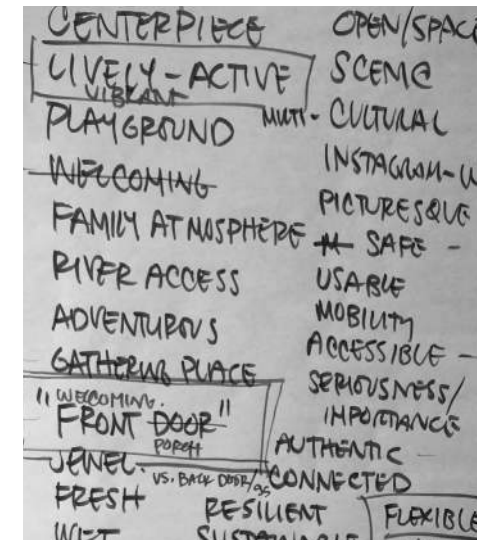 CENTERPIECE
LIVELY - ACTIVE
VIBRANT
PLAYGROUND
WELCOMING
FAMILY ATMOSPHERE
RIVER ACCESS
ADVENTUROUS
GATHERING PLACE
"WELCOMING.
FRONT DOOR"
PORCH
JEWEL.
VS. BACK DOOR/
FRESH
WET
OPEN/SPACE
SCENIC
MULTI - CULTURAL
INSTAGRAM-
PICTURESQUE
SAFE -
USABLE
MOBILITY
ACCESSIBLE -
SERIOUSNESS/
IMPORTANCE
AUTHENTIC
CONNECTED
RESILIENT
SUSTAINABLE
FLEXIBLE